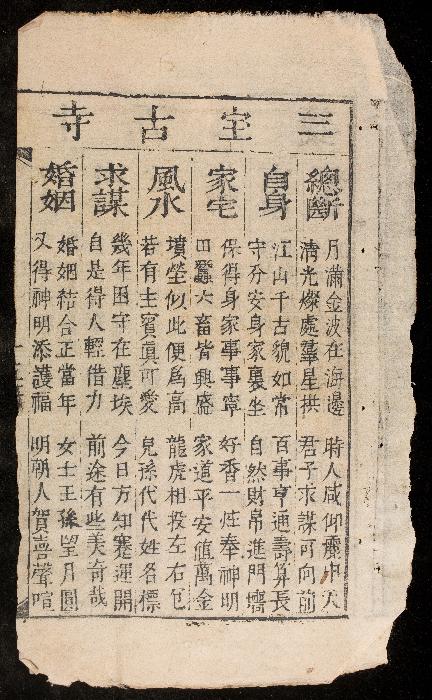 三宝古寺
總斷
月滿金波在海邊 時人咸仰霽中天
清光燦處羣星拱 君子求謀可向前
自身
江山千古貌如常 百事亨通壽算長
守分安身家裏坐 自然財帛進門墻
家宅
保得身家事事寧 好香一炷奉神明
田蠶六畜皆興盛 家道平安值萬金
風水
墳塋似此便爲高 龍虎相投左右包
若有主賓眞可愛 兒孫代代姓名標
求謀
幾年困守在塵埃 今日方知蹇運開
自是得人輕借力 前途有些美奇哉
婚姻
婚姻結合正當年 女士王孫望月圓
又得神明添護福 明朝人賀喜聲喧